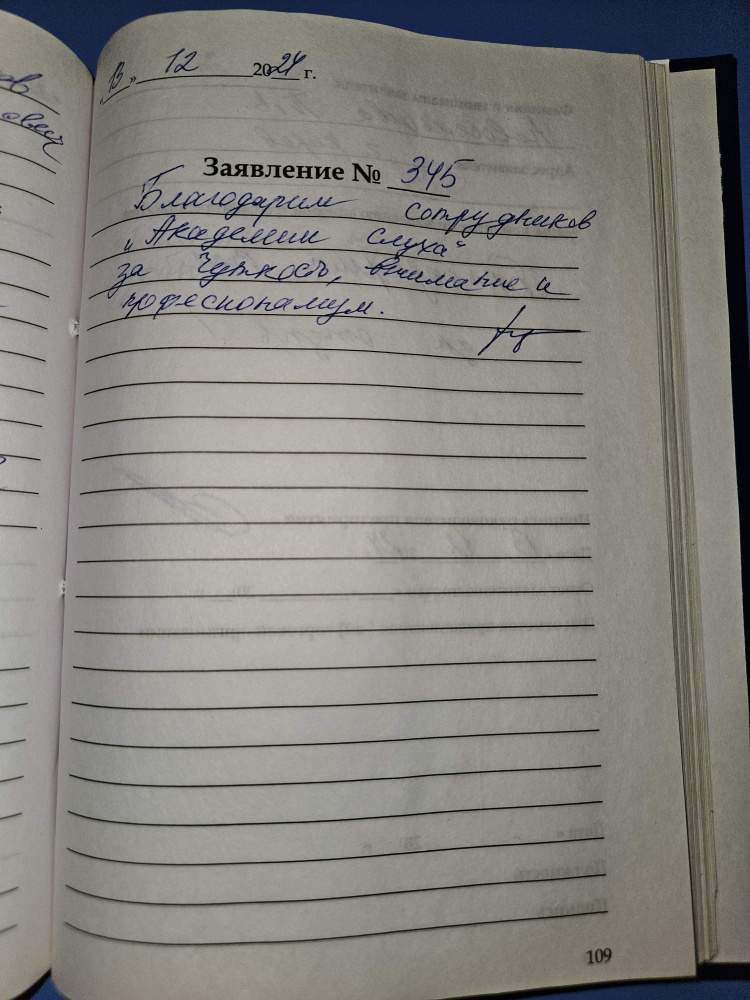 ов
ович
„13» 12 2024 г.
Заявление № 345
Благодарим сотрудников
„Академии слуха“
за чуткость, внимание и
професионализм.
109